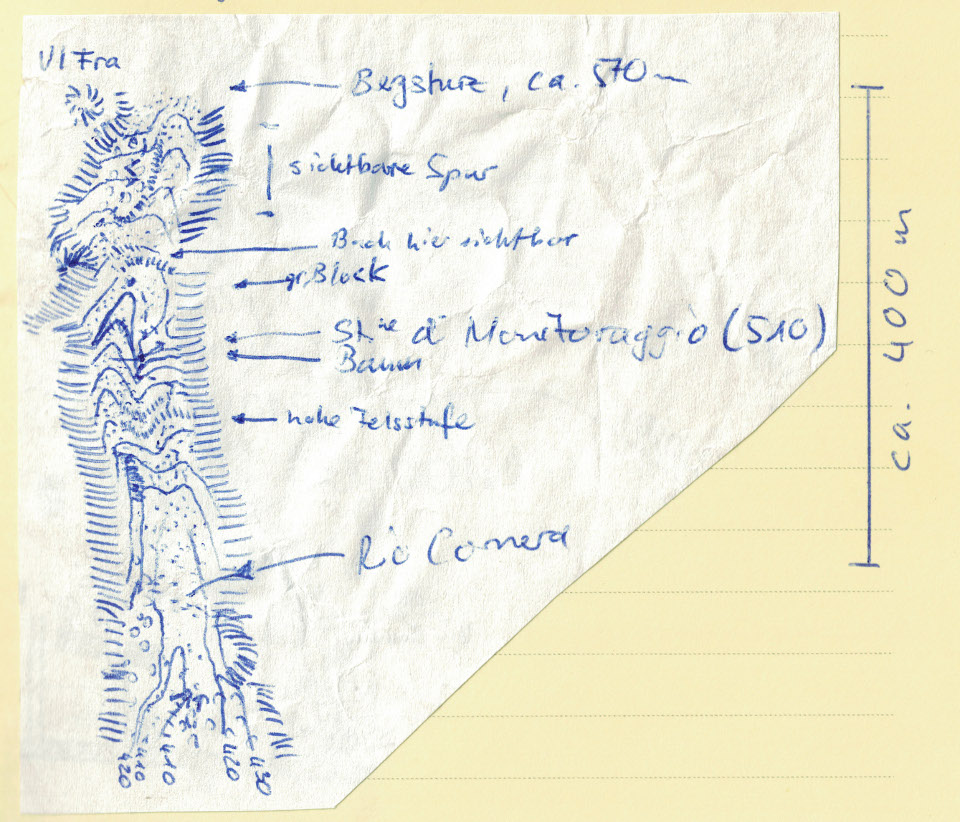 VI Fra
Begsturz, ca. 570 m
sichtbare Spur
Bach hier sichtbar
gr. Block
St.ne di Monitoraggio (510)
Baum
hohe Felsstufe
Rio Cornera
ca. 400 m
420 410 410 420 430